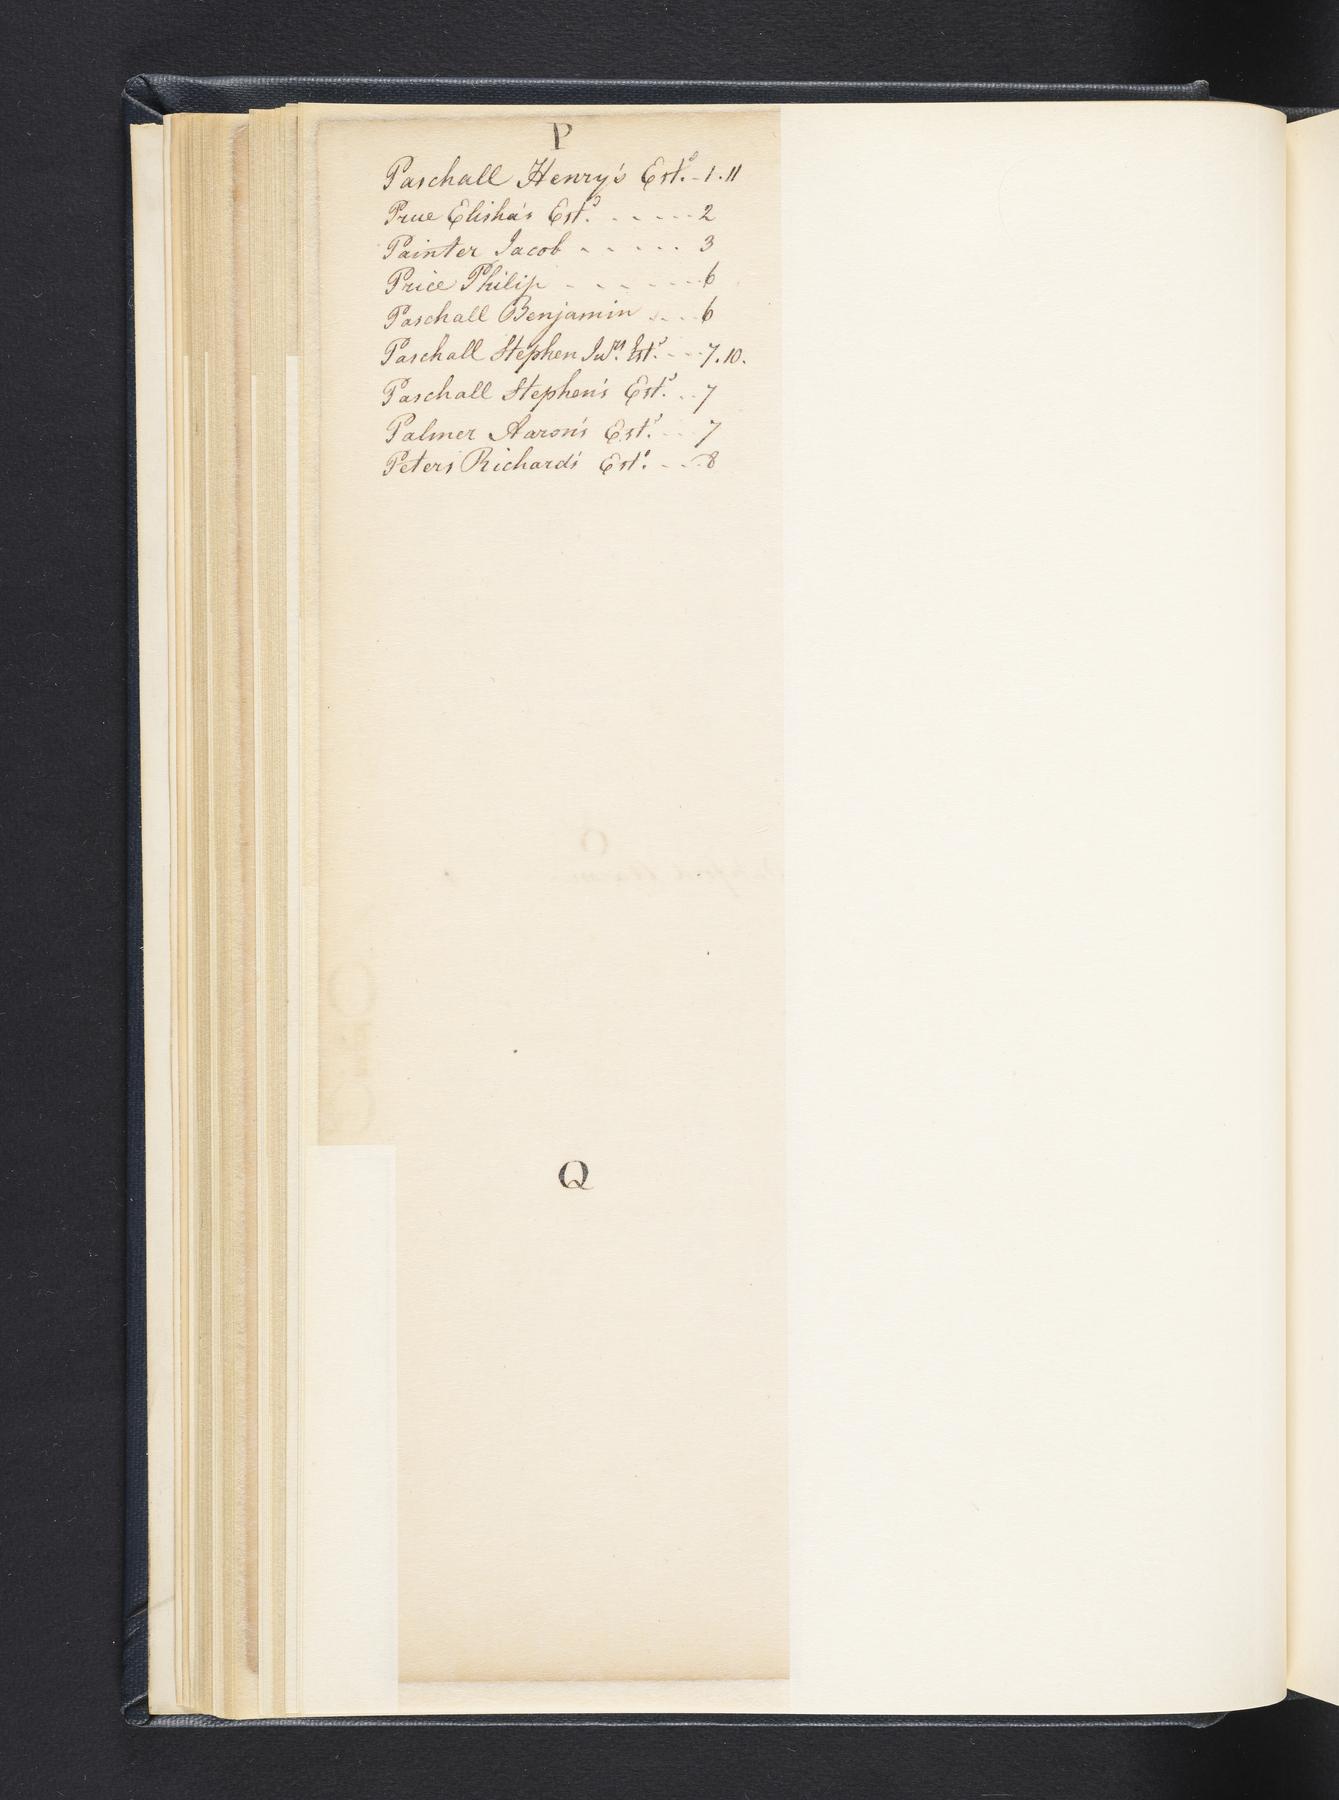 P
Paschall Henry's Est.s - 1.11
Prue Elisha's Est.s - - - - - 2
Painter Jacob - - - - - 3
Price Philip - - - - - - 6
Paschall Benjamin - - - 6
Paschall Stephen Junr. Est.s - - - 7.10.
Paschall Stephen's Est.s - - 7
Palmer Aaron's Est.s - - 7
Peters Richard's Est.s - - - 8
Q